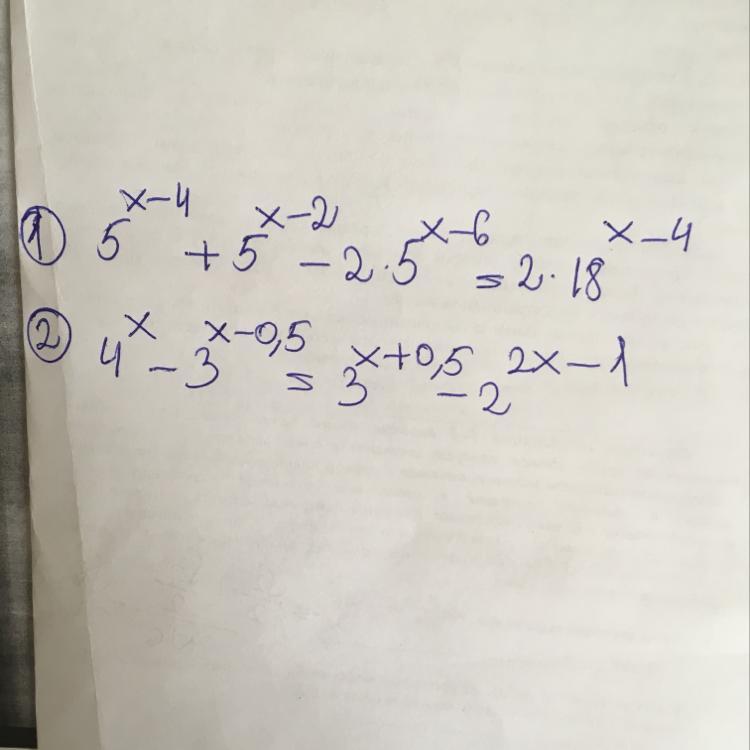 ① 5^{x-4} + 5^{x-2} - 2·5^{x-6} = 2·18^{x-4}
② 4^{x} - 3^{x-0,5} = 3^{x+0,5} - 2^{2x-1}